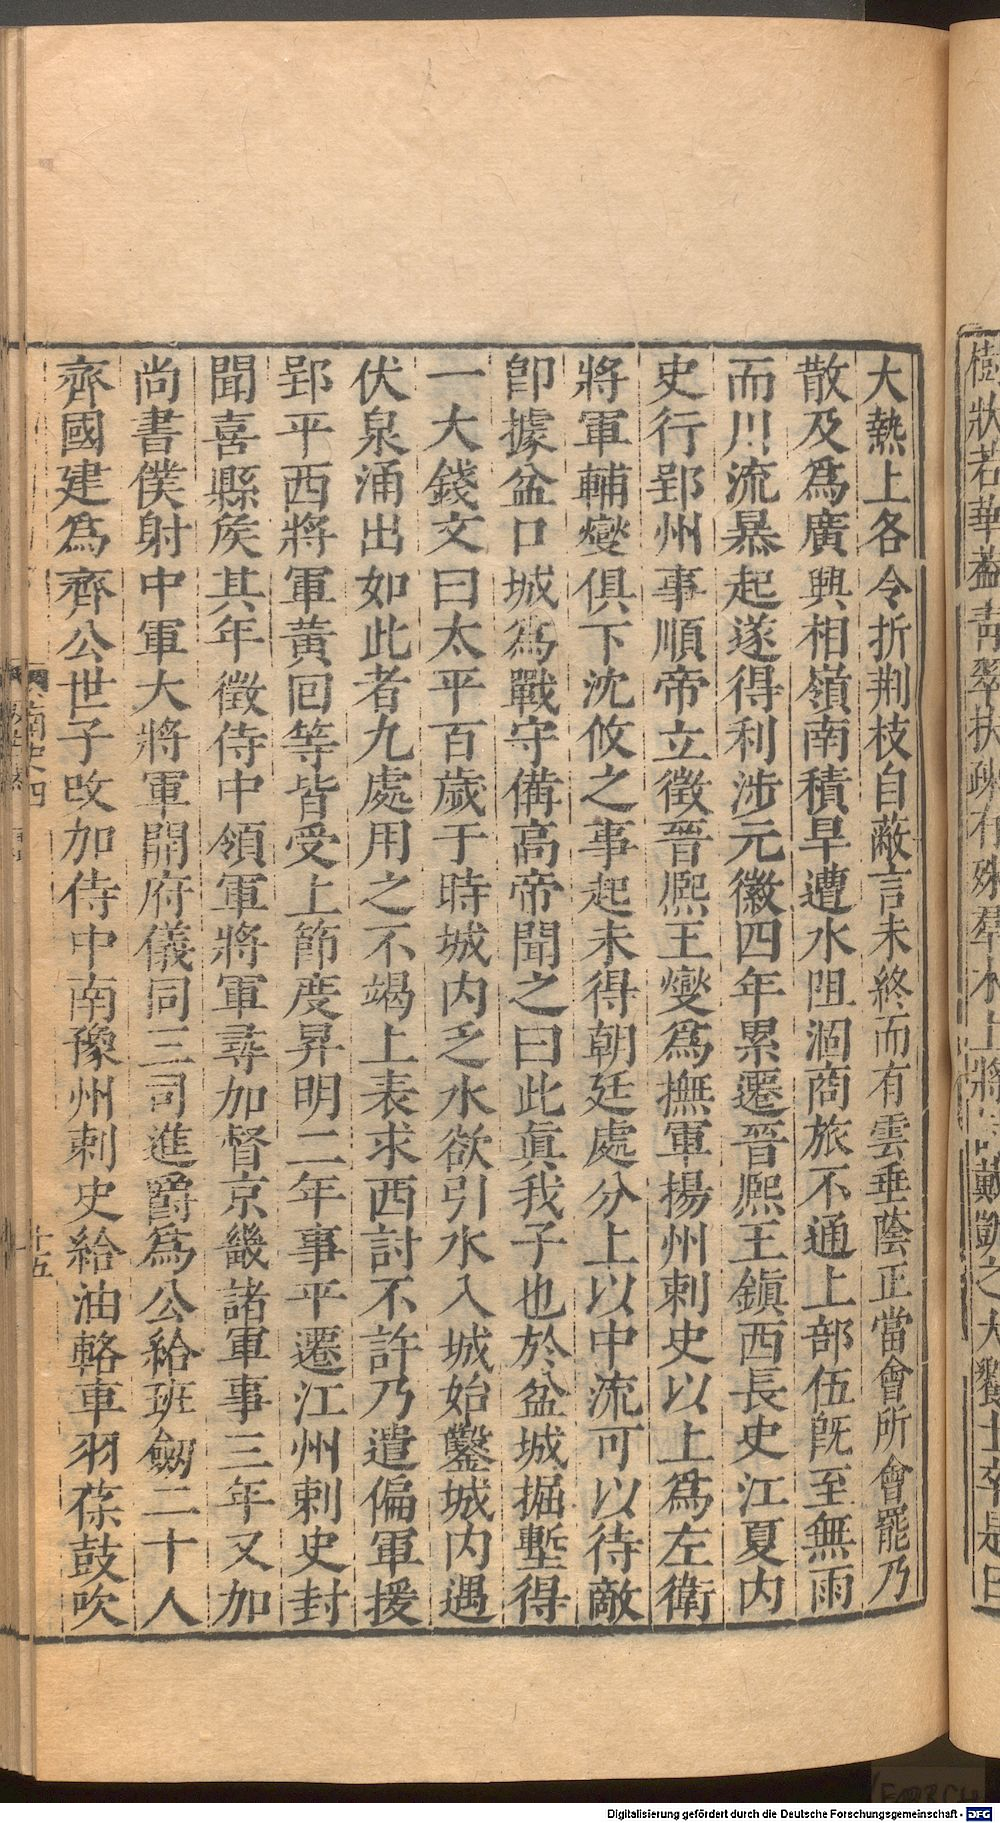 樹狀若華蓋青翠扶疎有殊羣木上將
戴凱之大饗士卒是日
大熱上各令折荆枝自蔽言未終而有雲垂蔭正當會所會罷乃
散及爲廣興相嶺南積旱遭水阻涸商旅不通上部伍旣至無雨
而川流暴起遂得利涉元徽四年累遷晉熈王鎭西長史江夏内
史行郢州事順帝立徵晉熈王燮爲撫軍揚州刺史以上爲左衛
將軍輔燮俱下沈攸之事起未得朝廷處分上以中流可以待敵
卽據盆口城爲戰守備高帝聞之曰此眞我子也於盆城掘塹得
一大錢文曰太平百歲于時城内乏水欲引水入城始鑿城内遇
伏泉涌出如此者九處用之不竭上表求西討不許乃遣偏軍援
郢平西將軍黃回等皆受上節度昇明二年事平遷江州刺史封
聞喜縣矦其年徵侍中領軍將軍尋加督京畿諸軍事三年又加
尚書僕射中軍大將軍開府儀同三司進爵爲公給班劒二十人
齊國建爲齊公世子攺加侍中南豫州刺史給油輅車羽葆鼓吹
南史四
十五
Digitalisierung gefördert durch die Deutsche Forschungsgemeinschaft - DFG